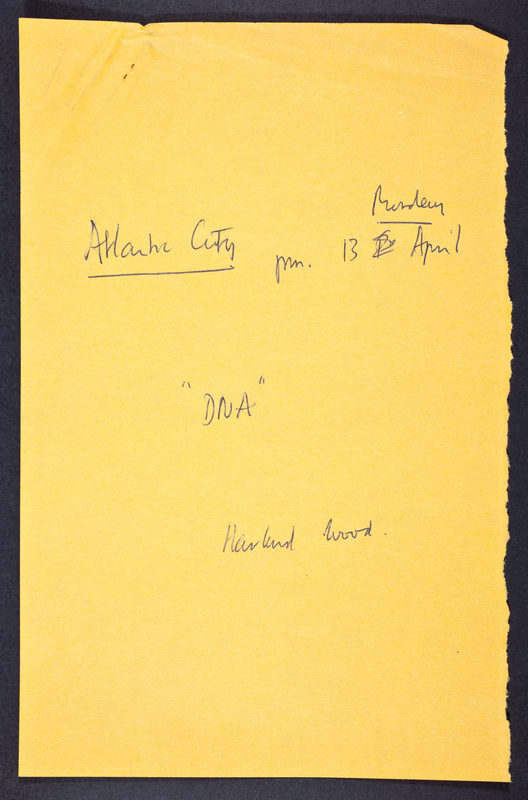 Monday
Atlantic City pm. 13 April
"DNA"
Harland Wood.